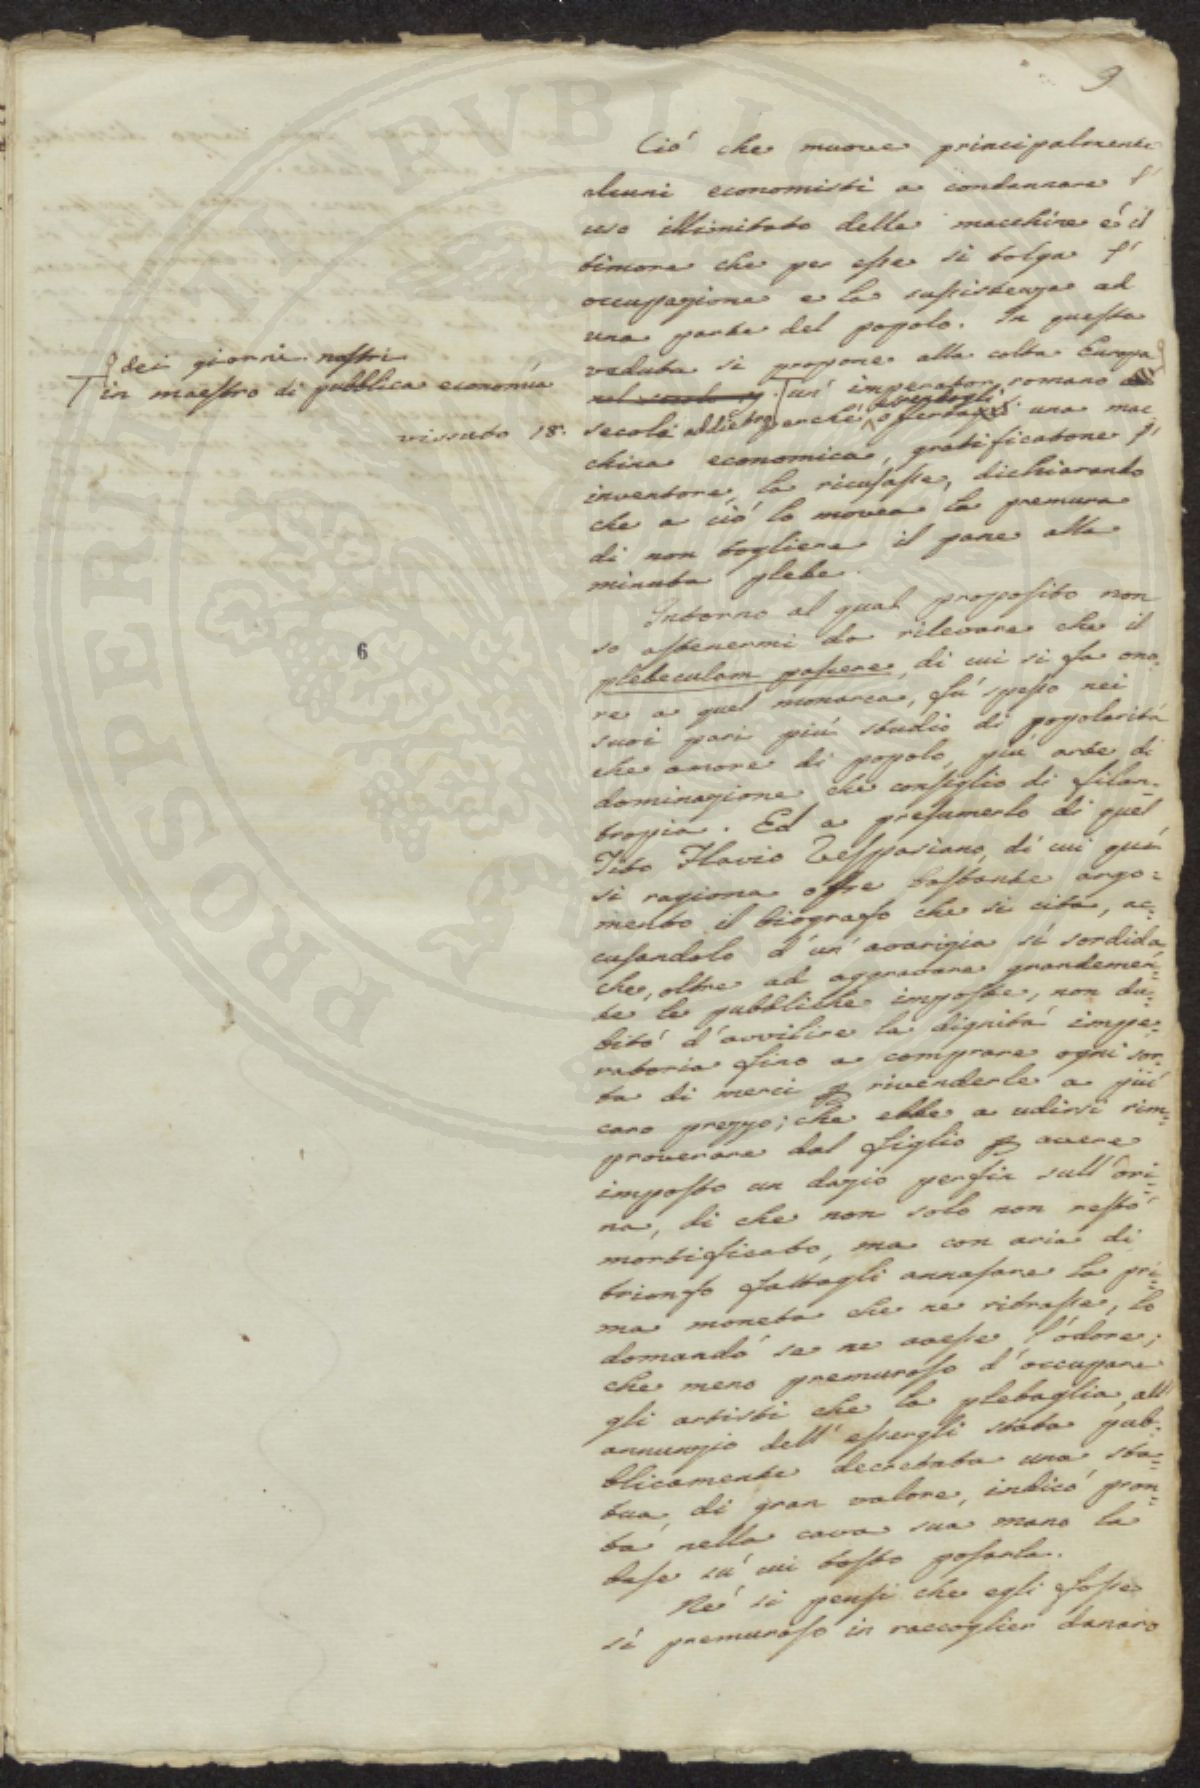 9
Ció che muove principalmente
alcuni economisti a condannare l'
uso illimitato delle macchine é il
timore che per esse si tolga l'
occupazione e la sussistenza ad
una parte del popolo. In questa
veduta si propone alla colta Europa
dei giorni nostri
in maestro di pubblica economía
un' imperator romano
vissuto 18.
secoli addietro perché essendogli
offerta una mac
china economica, gratificatone l'
inventore, la ricusasse, dichiarando
che a ció lo movea la premura
di non togliere il pane alla
minuta plebe.
Intorno al qual proposito non
so astenermi da rilevare che il
plebeculam pascere, di cui si fa ono-
re a quel monarca, fú spesso nei
suoi pari piú studio di popolaritá
che amore di popolo, piú arte di
dominazione che consiglio di filan-
tropia. Ed a presumerlo di quel
Tito Flavio Vespasiano, di cui quí
si ragiona offre bastante argo=
mento il biografo che si cita, ac=
cusandolo d'un' avarizia sí sordida
che, oltre ad aggravare grandemen=
te le pubbliche imposte, non du=
bitó d'avvilire la dignitá impe=
ratoria fino a comprare ogni sor=
ta di merci p rivenderle a piú
caro prezzo; che ebbe a udirsi rim=
proverare dal figlio p avere
imposto un dazio perfin sull' ori=
na, di che non solo non restó
mortificato, ma con aria di
trionfo fattogli annasare la pri=
ma moneta che ne ritrasse, lo
domandó se ne avesse l'odore;
che meno premuroso d'occupare
gli artisti che la plebaglia, all'
annunzio dell' essergli stata pub=
blicamente decretata una sta=
tua di gran valore, indicó pron=
ta nella cava sua mano la
base sú cui tosto posarla.
Né si pensi che egli fosse
sí premuroso in raccoglier danaro
6